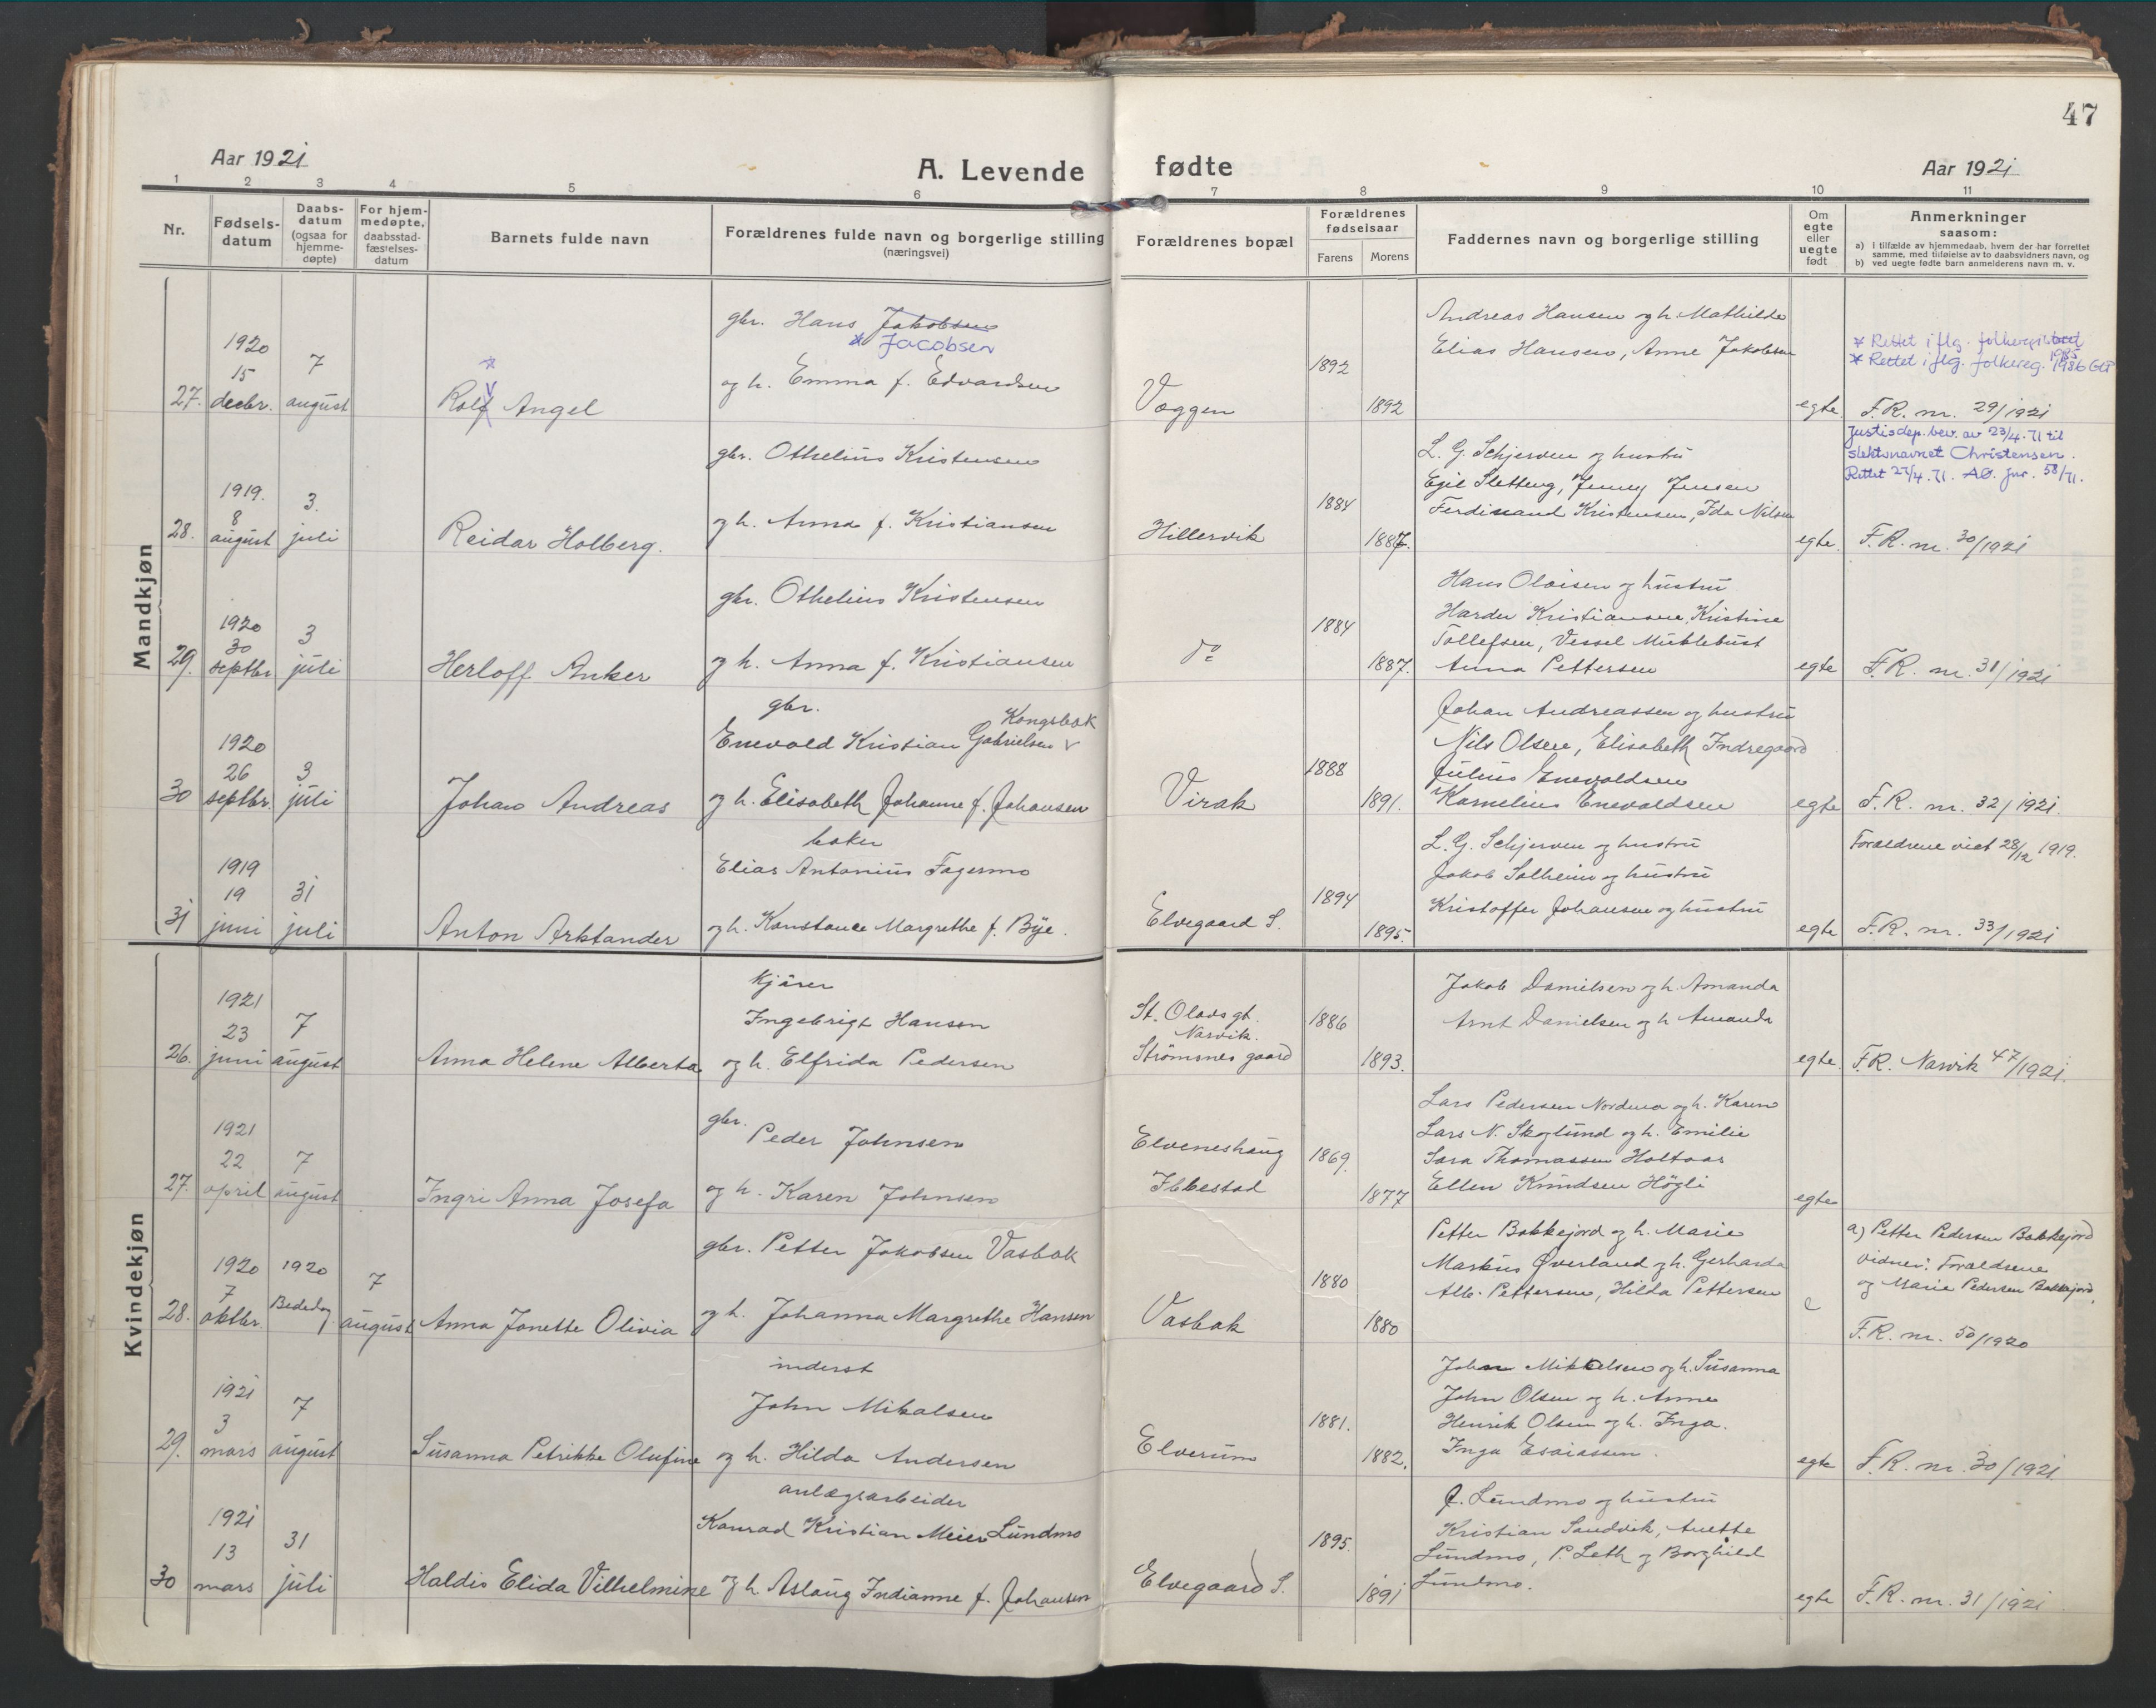 47
Aar 1921
A. Levende fødte
Aar 1921
1 2 3 4 5 6 7 8 9 10 11
Nr.
Fødselsdatum
Daabsdatum (ogsaa for hjemmedøpte)
For hjemmedøpte, daabsstadfæstelsesdatum
Barnets fulde navn
Forældrenes fulde navn og borgerlige stilling
(næringsvei)
Forældrenes bopæl
Forældrenes fødselsaar
Farens Morens
Faddernes navn og borgerlige stilling
Om egte eller uegte født
Anmerkninger
saasom:
a) i tilfælde av hjemmedaab, hvem der har forrettet
samme, med tilføielse av to daabsvidners navn, og
b) ved uegte fødte barn anmelderens navn m. v.
Mandkjøn
27. 1920 15 decbr. 7 august
Rolf Angel
gbr. Hans Jakobsen
* Jacobsen
og h. Emma f. Edvardsen
Væggen
1892
1892
Andreas Hansen og h. Mathilde
Elias Hansen, Anne Jakobsen
egte
* Rettet iflg. folkereg.
* Rettet iflg. folkereg. 1986
F.R. nr. 29/1921
28. 1919. 8 august 3. juli
Reidar Holberg.
gbr. Othelius Kristensen
og h. Anna f. Kristiansen
Hillervik
1884
1887.
L. G. Schjerven og hustru
Egil Sletteng, Jenny Jensen
Ferdinand Kristensen, Ida Nilsen
egte.
Justisdep. bev. av 23/4.71 til
slektsnavnet Christensen.
Rettet 27/4.71. AØ. jnr. 58/71.
F.R. nr. 30/1921
29. 1920 30 septbr 3 juli
Herloff Anker
gbr. Othelius Kristensen
og h. Anna f. Kristiansen
do
1884
1887.
Hans Olaisen og hustru
Harder Kristiansen, Kristine
Tollefsen, Vessel Mublebust
Anna Pettersen
egte
F.R. nr. 31/1921
30 1920 26 septbr. 3 juli
Johan Andreas
gbr.
Kongsbak
Enevold Kristian Gabrielsen v
og h. Elisabeth Johanne f. Johansen
Virak
1888
1891.
Johan Andreassen og hustru
Nils Olsen, Elisabeth Indregaard
Julius Enevoldsen
Kornelius Enevoldsen
egte
F.R. nr. 32/1921.
31 1919 19 juni 31 juli
Anton Arktander
baker
Elias Antonius Fagermo
og h. Konstance Margrethe f. Bye.
Elvegaard S.
1894
1895.
L. G. Schjerven og hustru
Jakob Solheim og hustru
Kristoffer Johansen og hustru
egte
Forældrene viet 28/12 1919.
F.R. nr. 33/1921
Kvindekjøn
26. 1921 23 juni 7 august
Anna Helene Alberta
kjører
Ingebrigt Hansen
og h. Elfrida Pedersen
St. Olavs gt.
Narvik.
Strømsnes gaard
1886
1893.
Jakob Danielsen og h. Amanda
Arnt Danielsen og h Amanda
egte.
F.R. Narvik 47/1921.
27. 1921 22 april 7 august
Ingri Anna Josefa
gbr.
Peder Johnsen
og h. Karen Johnsen
Elveneshaug
Ibbestad
1869.
1877
Lars Pedersen Nordmo og h. Karen
Lars N. Skoglund og h. Emilie
Sara Thomassen Holtaas
Ellen Knudsen Högli
egte
28. 1920 7 oktbr. 1920 Bededag 7 august
Anna Jonette Olivia
gbr. Petter Jakobsen Vasbak
og h. Johanna Margrethe Hansen
Vasbak
1880
1880
Petter Bakkejord og h. Marie
Markus Øverland og h. Gerharda
Alb. Pettersen, Hilda Pettersen
e
a) Petter Pedersen Bakkejord
vidner: Forældrene
og Marie Pedersen Bakkejord,
F.R. nr. 50/1920
29. 1921 3 mars 7 august
Susanna Petrikke Olufine
inderst
John Mikalsen
og h. Hilda Andersen
Elverum
1881.
1882.
Johan Mikkelsen og h. Susanna
John Olsen og h. Anne
Henrik Olsen og h. Inga.
Inga Esaiassen.
egte
F.R. nr. 30/1921
30 1921 13 mars 31 juli
Haldis Elida Vilhelmine
anlægsarbeider
Konrad Kristian Meier Lundmo
og h Aslaug Indianne f. Johansen
Elvegaard S.
1895.
1891
J. Lundmo og hustru
Kristian Sandvik, Anette
Lundmo, P. Leth og Borghild
Lundmo.
egte
F.R. nr. 31/1921